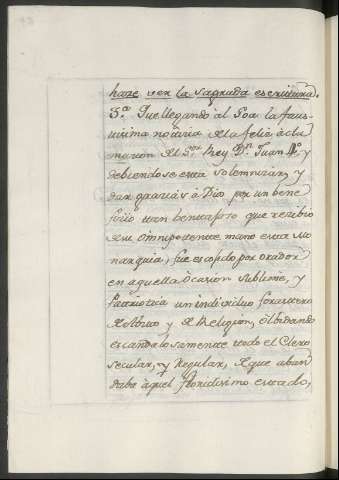 haze ver la sagrada escritura.
3.ª Que llegando âl Goa la faus-
tissima noticia de la feliz âcla
macion del S.or Rey D.n Juan IV.º y
debiendose esta solemnizar, y
dar gracias â Dios por un bene
ficio tan benemerito que recibio
de su omnipotente mano esta Mo
narquia; fue escojido por orador
en aquella ôcasion sublime, y
Patriotica un individuo forastero
de Abito y de Religion, ôlbidando
escandalosamente todo el Clero
secular, y Regular, de que abun
daba âquel floridisimo estado,